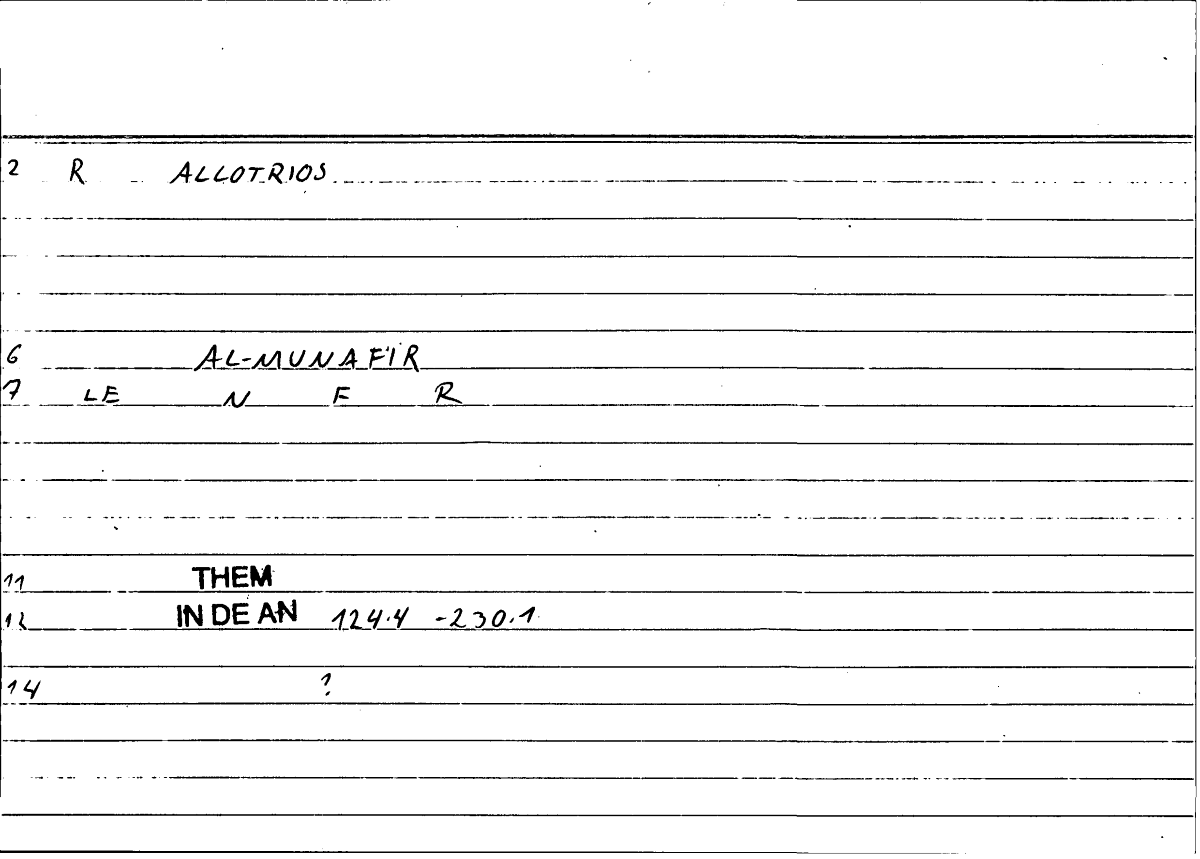 2 R ALLOTRIOS
6 AL-MUNAFIR
7 LE N F R
11 THEM
12 IN DE AN 124.4 -230.1
14 ?